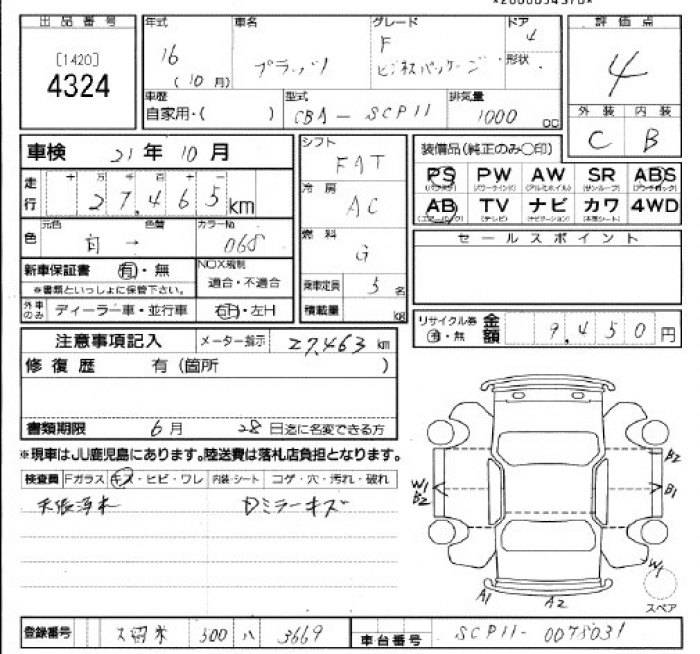 出品番号
[1420]
4324
年式 車名 グレード ドア 評価点
16 F 4
(10月) プラッツ ビジネスパッケージ 形状 4
車歴 型式 排気量 外装 内装
自家用・( ) CBA-SCP11 1000 CC C B
車検 21年10月 シフト 装備品(純正のみ○印)
FAT
走行 十 万 千 百 十 一
27,465 km
PS PW AW SR ABS
(パワステ) (パワーウインド) (アルミホイル) (サンルーフ) (アンチロック)
冷房 AC
AB TV ナビ カワ 4WD
(エアーバック) (テレビ) (ナビゲーション) (本革シート)
色 元色 色替 カラーNo
白 → 068
燃料 G
セールスポイント
新車保証書 有・無
※書類といっしょに保管下さい。
NOX規制
適合・不適合
乗車定員 5 名
外車のみ ディーラー車・並行車 右H・左H
積載量 kg
リサイクル券 有・無 金額 9,450円
注意事項記入 メーター指示 27463 km
修復歴 有(箇所 )
書類期限 6月 28日迄に名変できる方
※現車はJU鹿児島にあります。陸送費は落札店負担となります。
検査員 Fガラス キズ・ヒビ・ワレ 内装・シート コゲ・穴・汚れ・破れ
天張浮き Dミラーキズ
B2
W1
B2
B1
W1
A1 A2
スペア
登録番号 久留米 500 ハ 3669 車台番号 SCP11-0078031